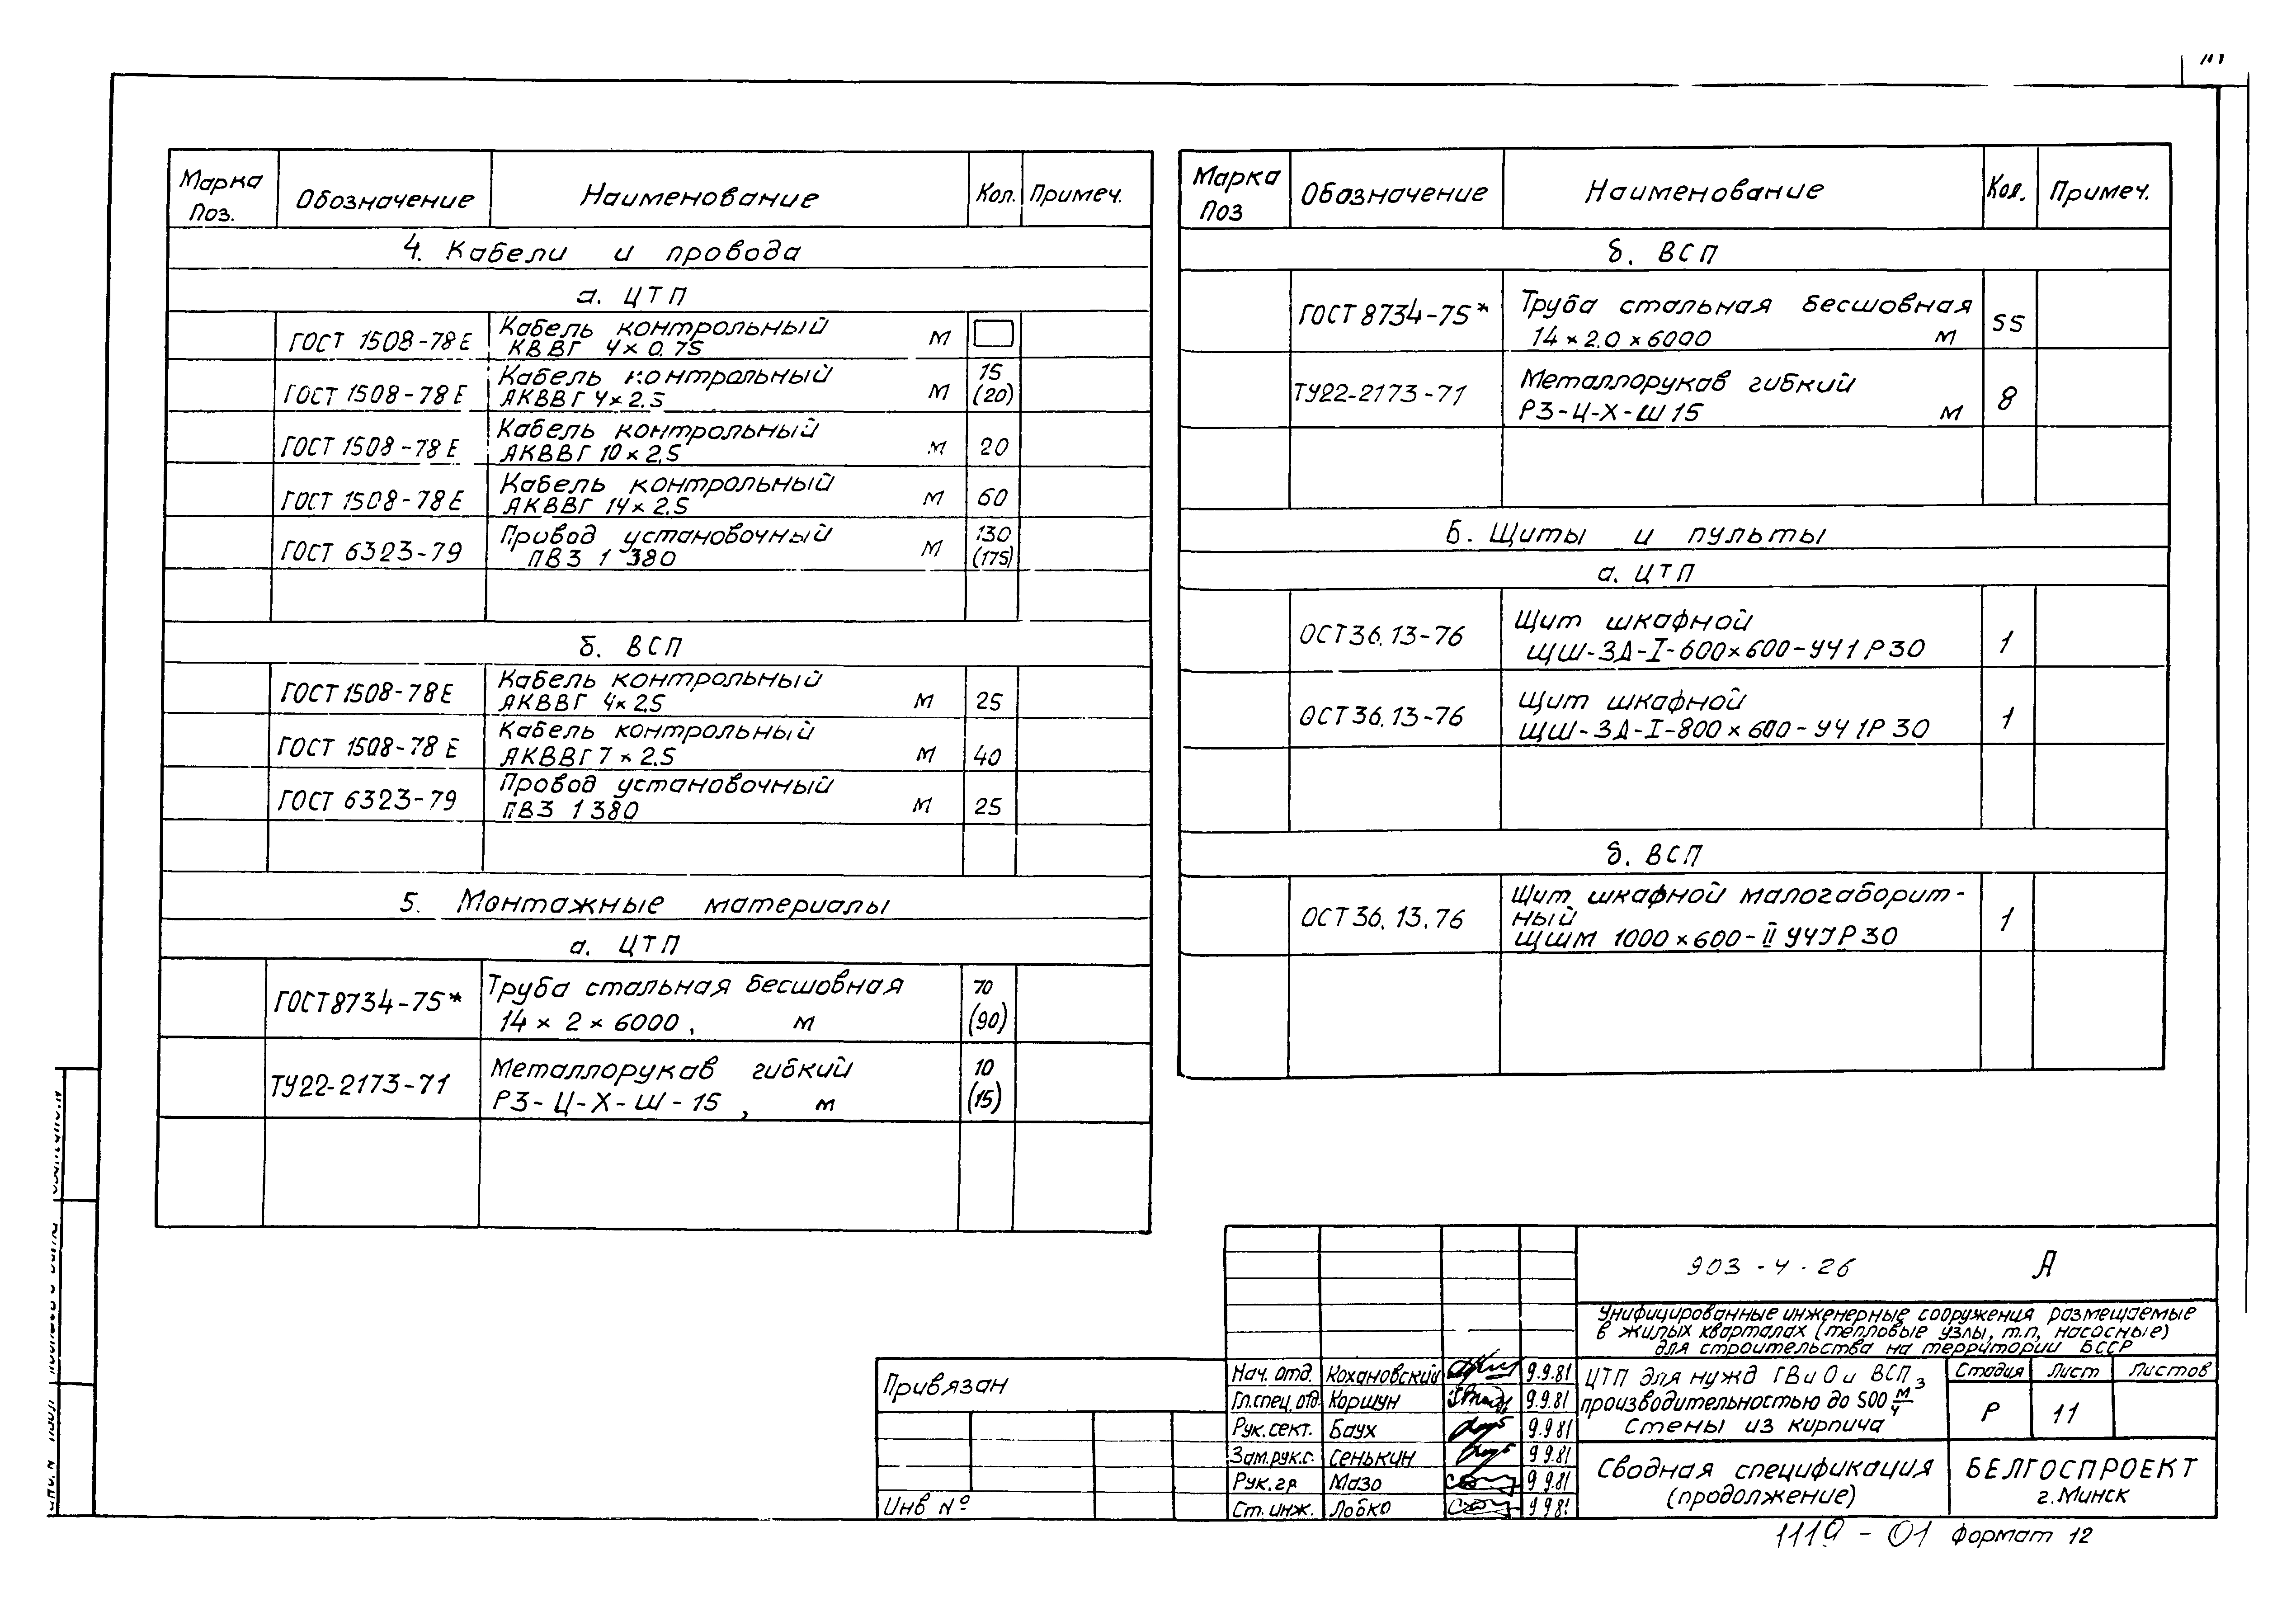 Марка Поз. Обозначение Наименование Кол. Примеч.
4. Кабели и провода
а. ЦТП
ГОСТ 1508-78Е Кабель контрольный КВВГ 4×0.75 м
ГОСТ 1508-78Е Кабель контрольный АКВВГ 4×2.5 м 15 (20)
ГОСТ 1508-78Е Кабель контрольный АКВВГ 10×2.5 м 20
ГОСТ 1508-78Е Кабель контрольный АКВВГ 14×2.5 м 60
ГОСТ 6323-79 Провод установочный ПВ3 1 380 м 130 (175)
б. ВСП
ГОСТ 1508-78Е Кабель контрольный АКВВГ 4×2.5 м 25
ГОСТ 1508-78Е Кабель контрольный АКВВГ 7×2.5 м 40
ГОСТ 6323-79 Провод установочный ПВ3 1 380 м 25
5. Монтажные материалы
а. ЦТП
ГОСТ 8734-75* Труба стальная бесшовная 14×2×6000, м 70 (90)
ТУ22-2173-71 Металлорукав гибкий РЗ-Ц-Х-Ш-15, м 10 (15)
Марка Поз Обозначение Наименование Кол. Примеч.
б. ВСП
ГОСТ 8734-75* Труба стальная бесшовная 14×2.0×6000 м 55
ТУ22-2173-71 Металлорукав гибкий РЗ-Ц-Х-Ш15 м 8
Б. Щиты и пульты
а. ЦТП
ОСТ36.13-76 Щит шкафной ЩШ-ЗД-I-600×600-УЧ1Р30 1
ОСТ36.13-76 Щит шкафной ЩШ-ЗД-I-800×600-УЧ1Р30 1
б. ВСП
ОСТ36.13.76 Щит шкафной малогаборит-
ный
ЩШМ 1000×600-II УЧ1Р30 1
903-4-26 А
Унифицированные инженерные сооружения размещаемые
в жилых кварталах (тепловые узлы, т.п, насосные)
для строительства на территории БССР
Нач. отд. Кохановский 9.9.81
Гл.спец.отд. Коршун 9.9.81
Рук. сект. Баух 9.9.81
Зам.рук.с. Сенькин 9.9.81
Рук. гр Мазо 9.9.81
Ст. инж. Лобко 9.9.81
ЦТП для нужд ГВ и О и ВСП
производительностью до 500 м³/ч
Стены из кирпича
Стадия Лист Листов
Р 11
Сводная спецификация
(продолжение)
БЕЛГОСПРОЕКТ
г. Минск
Привязан
Инв №
1119-01 Формат 12